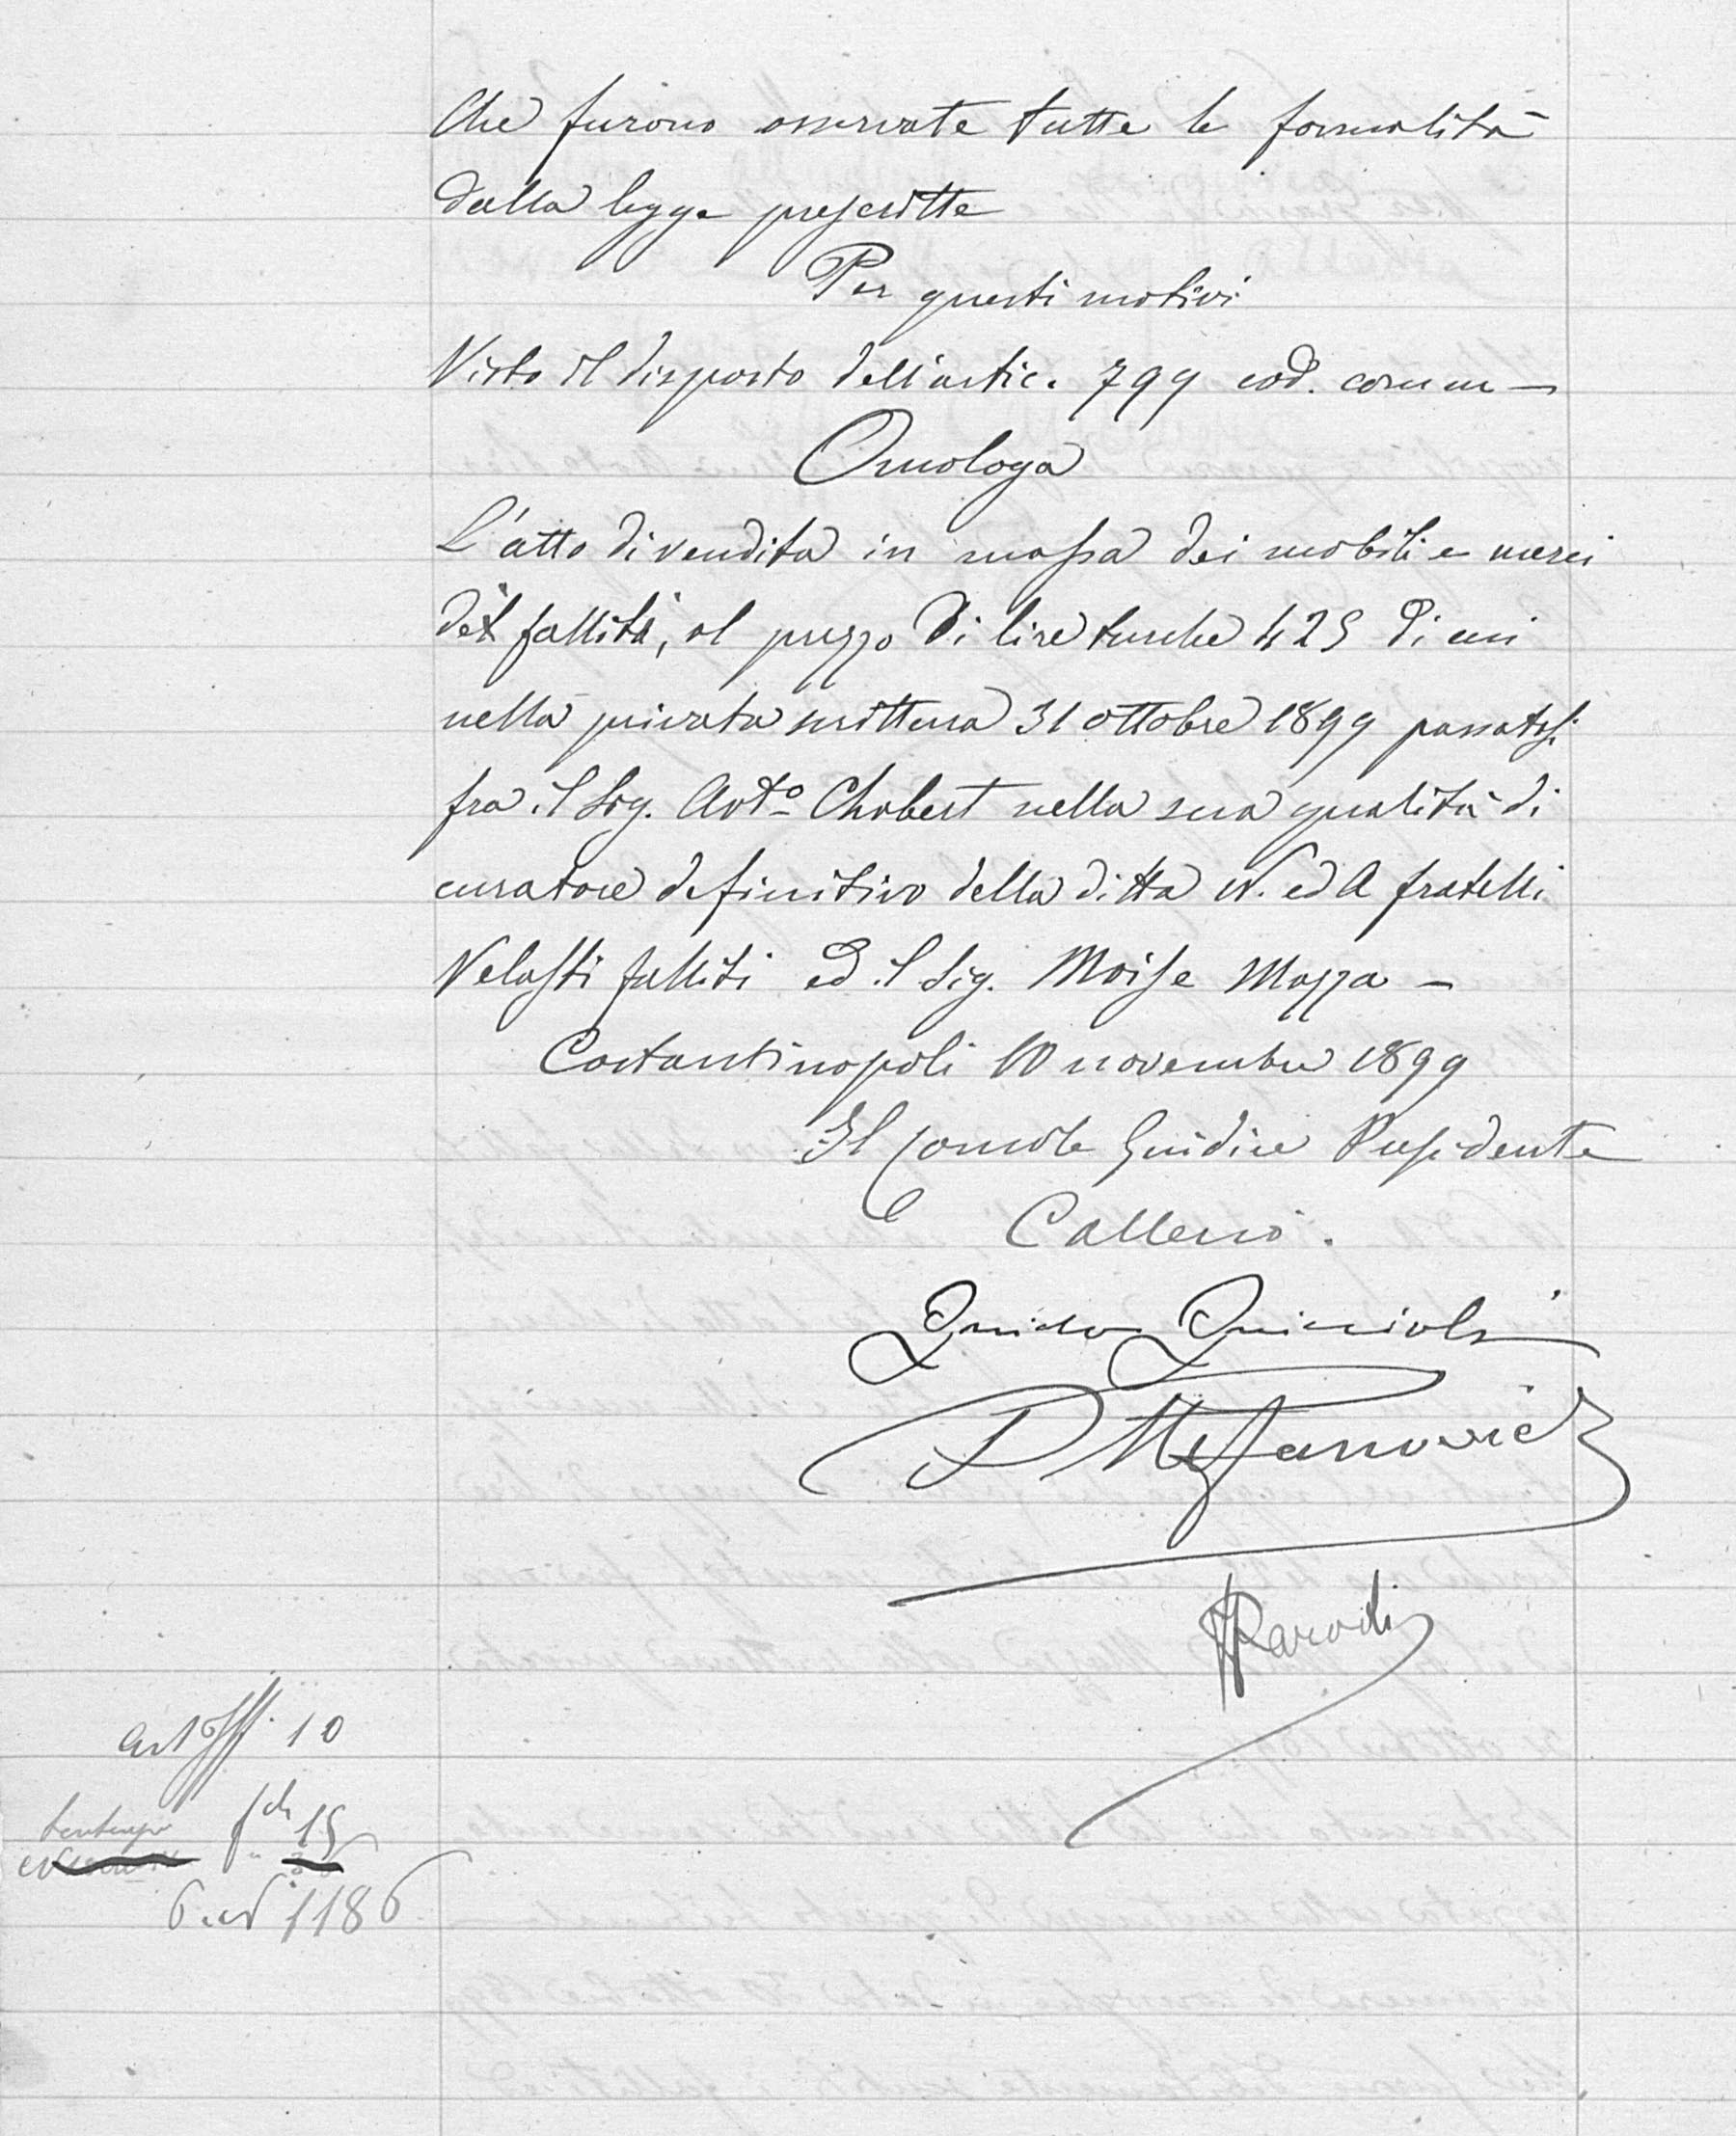 Che furono osservate tutte le formalità
dalla legge prescritte
Per questi motivi
Visto il disposto dell'artic. 799 cod. comm—
Omologa
L'atto di vendita in massa dei mobili e merci
dei falliti, al prezzo di lire turche 425 di cui
nella privata scrittura 31 ottobre 1899 passatasi
fra il Sig. Ant.º Chabert nella sua qualità di
curatore definitivo della ditta N. ed A fratelli
Velasti falliti ed il Sig. Moise Mazza —
Costantinopoli 10 novembre 1899
Il Console Giudice Presidente
Guido
P Steffanovich
Parodi
10
15
1186